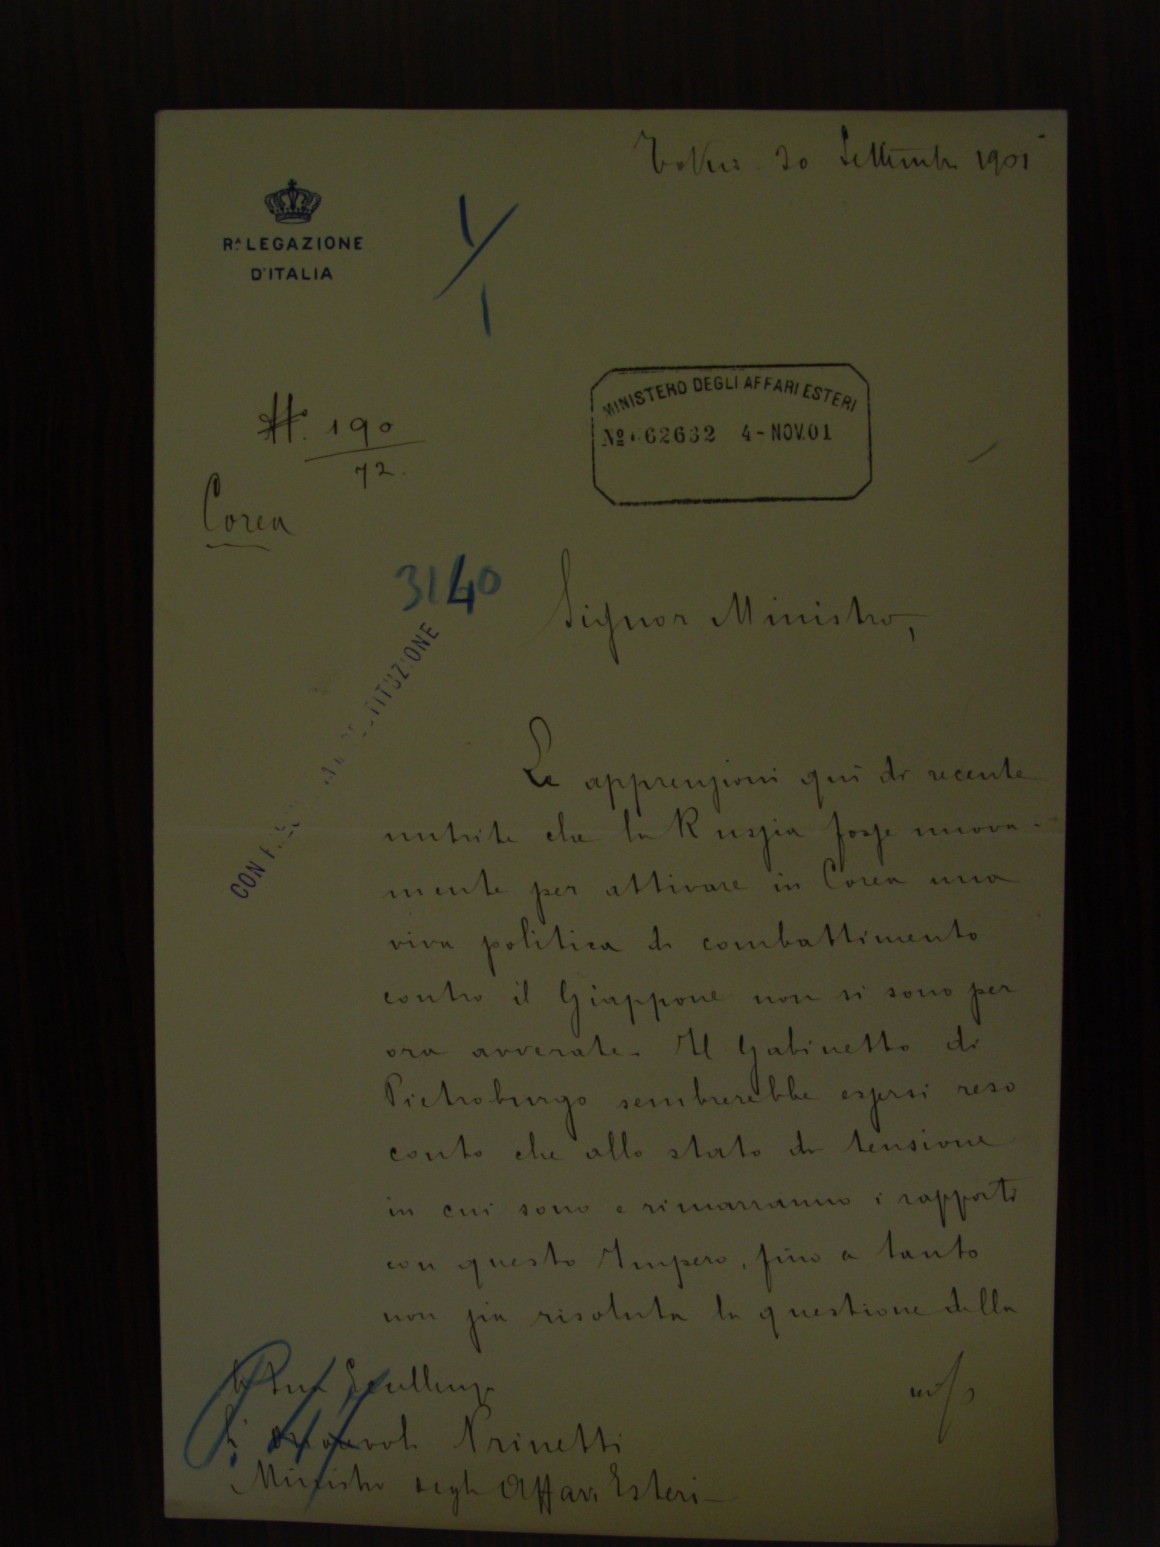 Tokio 30 Settembre 1901
Rᴬ LEGAZIONE
D'ITALIA
1/1
N. 190
72.
Corea
MINISTERO DEGLI AFFARI ESTERI
Nº 62632 4-NOV.01
3140
CON
Signor Ministro,
Le apprensioni quì di recente
nutrite che la Russia fosse nuova-
mente per attivare in Corea una
viva politica di combattimento
contro il Giappone non si sono per
ora avverate. Il Gabinetto di
Pietroburgo sembrerebbe essersi reso
conto che allo stato di tensione
in cui sono e rimarranno i rapporti
con questo Impero, fino a tanto
non sia risoluta la questione della
A Sua Eccellenza
onorevole Prinetti
Ministro degli Affari Esteri